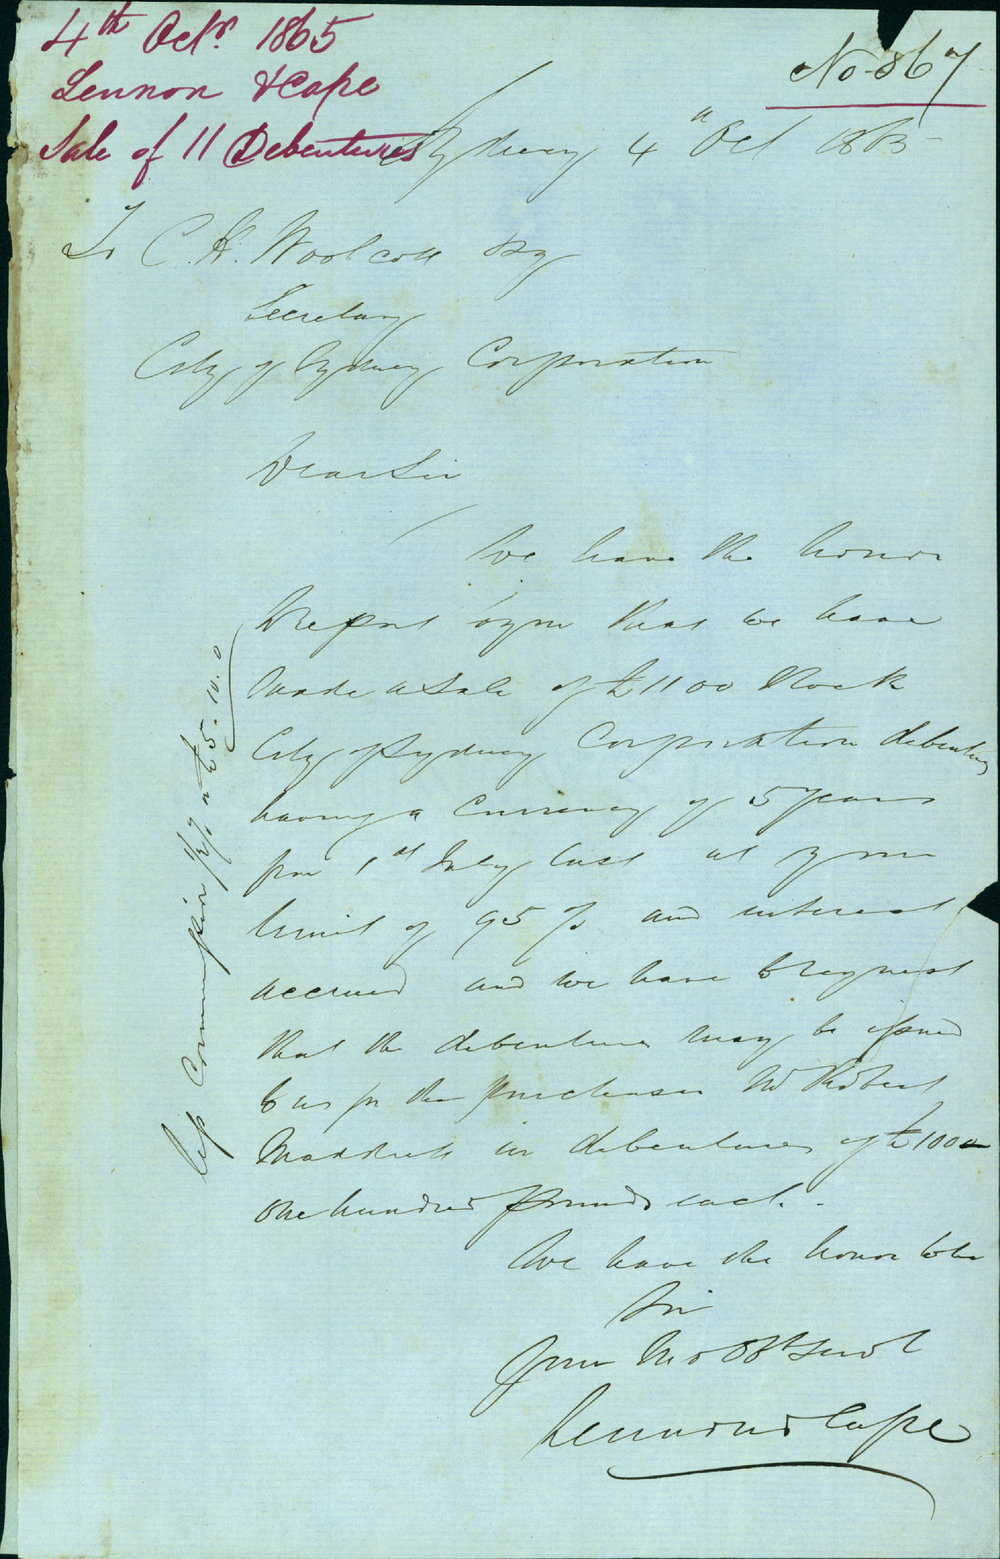 4th Octr. 1865
Lennon & Cape
Sale of 11 Debentures
No 867
Sydney 4th Oct 1865
To C. H. Woolcott Esq
Secretary
City of Sydney Corporation
Dear Sir
We have the honor
to report to you that we have
made a Sale of £1100 Stock
City of Sydney Corporation debentures
having a Currency of 5 years
from 1st July last at your
limit of 95 % and interest
accrued and we have to request
that the debentures may be issued
to us for the purchaser Mr Robert
in debentures of £100
one hundred pounds each.
We have the honor to be
Sir
Your Mo Obt Servt
Lennon & Cape
less Commission ½ % £5.10.0